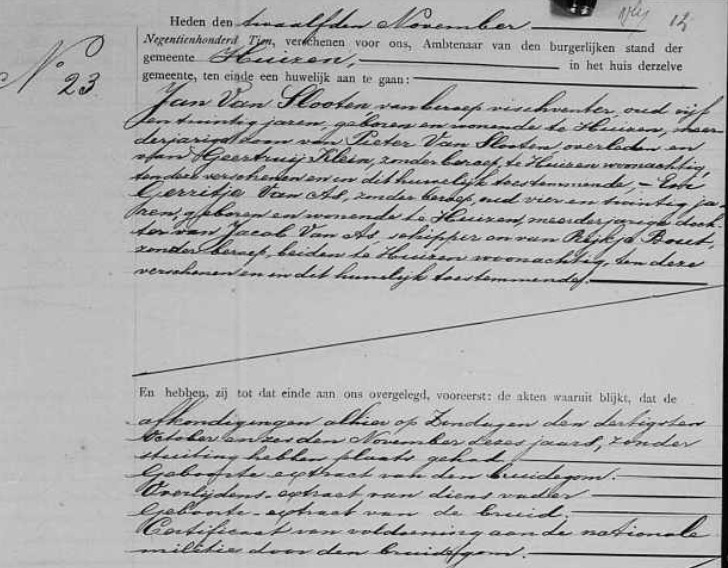 12
Heden den twaalfden November
Negentienhonderd Tien, verschenen voor ons, Ambtenaar van den burgerlijken stand der
gemeente Huizen, in het huis derzelve
gemeente, ten einde een huwelijk aan te gaan:
No 23.
Jan Van Slooten van beroep vischventer, oud vijf
en twintig jaren, geboren en wonende te Huizen, meer
derjarige zoon van Pieter Van Slooten overleden en
van Geertruij Klein, zonder beroep, te Huizen woonachtig,
ten deze verschenen en in dit huwelijk toestemmende, – En
Gerritje Van As, zonder beroep, oud vier en twintig ja-
ren, geboren en wonende te Huizen, meerderjarige doch-
ter van Jacob Van As, schipper en van Rijkje Bout,
zonder beroep, beiden te Huizen woonachtig, ten deze
verschenen en in dit huwelijk toestemmende.
En hebben, zij tot dat einde aan ons overgelegd, vooreerst: de akten waaruit blijkt, dat de
afkondigingen alhier op Zondagen den dertigsten
October en zesden November dezes jaars, zonder
stuiting hebben plaats gehad.
Geboorte-extract van den bruidegom.
Overlijdens-extract van diens vader
Geboorte-extract van de bruid.
Certificaat van voldoening aan de nationale
militie door den bruidegom.